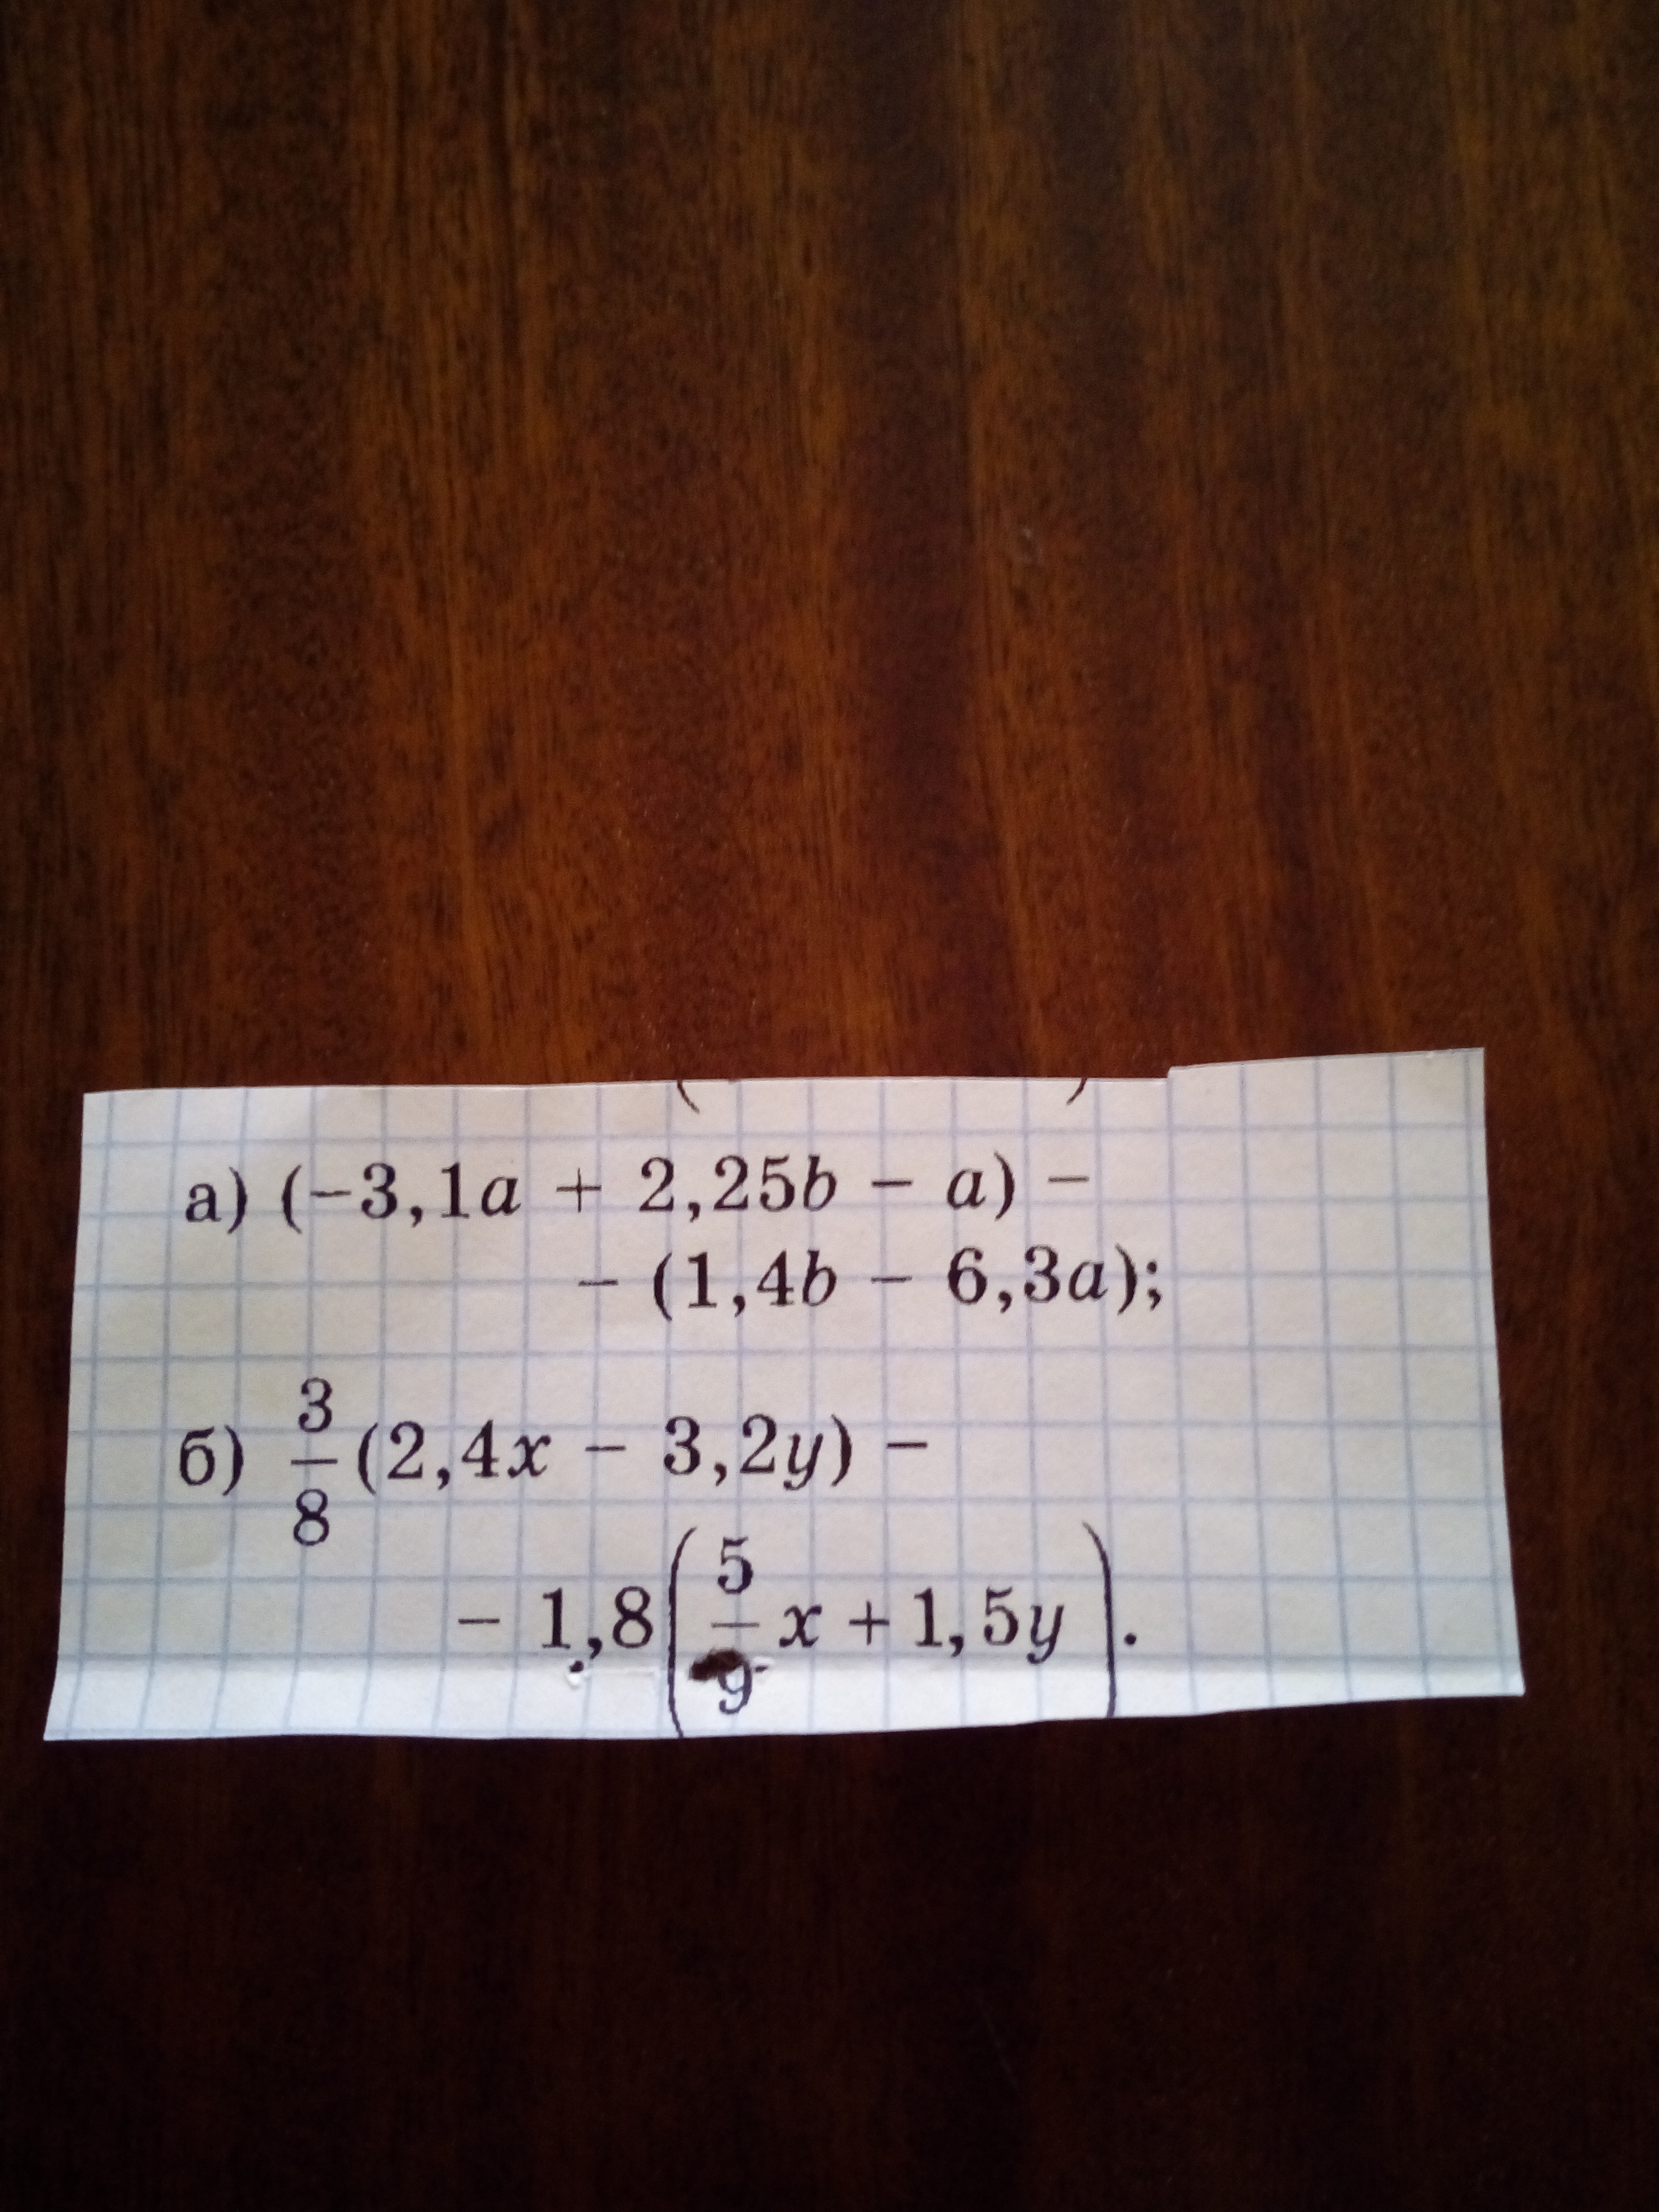 а) (−3,1a + 2,25b − a) −
− (1,4b − 6,3a);
б) 3/8 (2,4x − 3,2y) −
− 1,8(5/9 x + 1,5y).